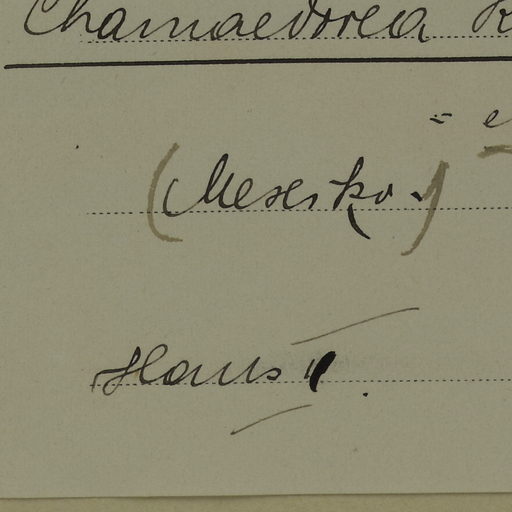 Chamaedorea
(Mexiko.)
Haus